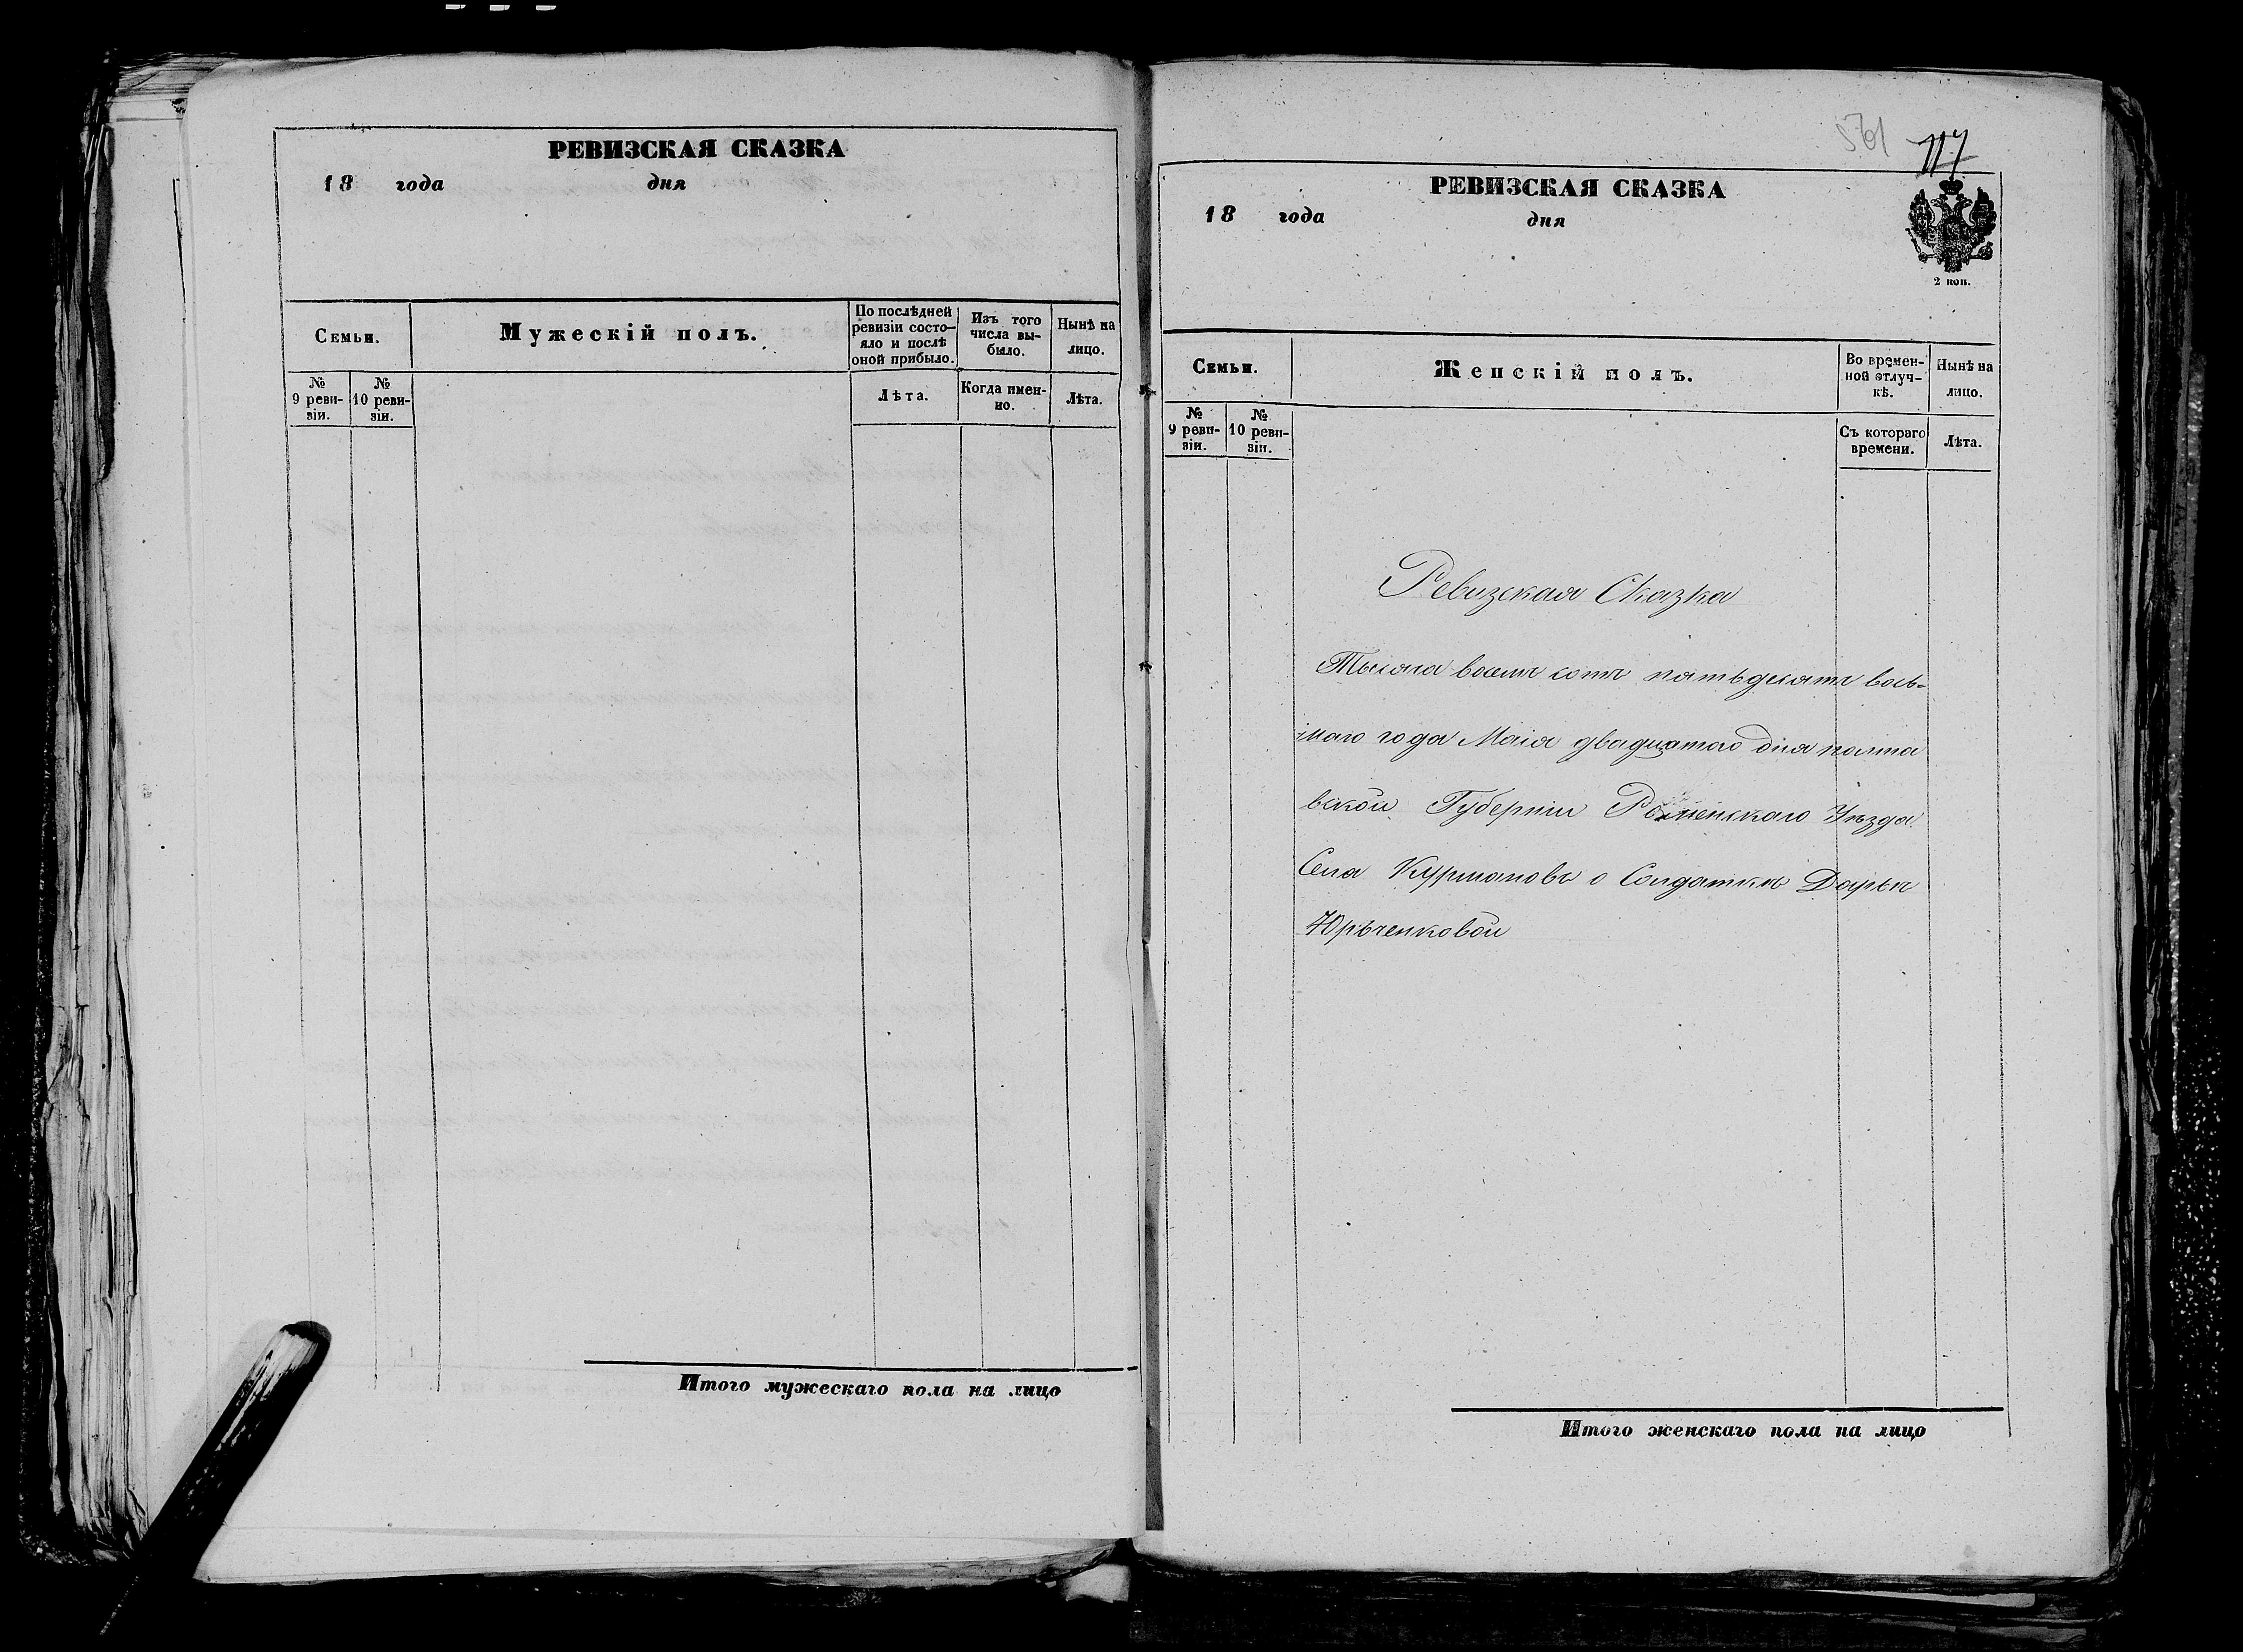 РЕВИЗСКАЯ СКАЗКА
18 года дня
Семьи.
Мужескій полъ.
По послѣдней ревизіи состо-
яло и послѣ
оной прибыло.
Изъ того
числа вы-
было.
Нынѣ на
лицо.
№
9 реви-
зіи.
№
10 реви-
зіи.
Лѣта.
Когда имен-
но.
Лѣта.
Итого мужескаго пола на лицо
501
117
РЕВИЗСКАЯ СКАЗКА
18 года дня
2 коп.
Семьи.
Женскій полъ.
Во времен-
ной отлуч-
кѣ.
Нынѣ на
лицо.
№
9 реви-
зіи.
№
10 реви-
зіи.
Съ котораго
времени.
Лѣта.
Ревизская Сказка
Тысяча восемъ сотъ пятьдесятъ вось-
маго года Маія двадцятого дня полта
вской Губерніи Роменскаго Уѣзда
Села Курмановъ о Солдаткѣ Дарьѣ
Юрьченковой
Итого женскаго пола на лицо